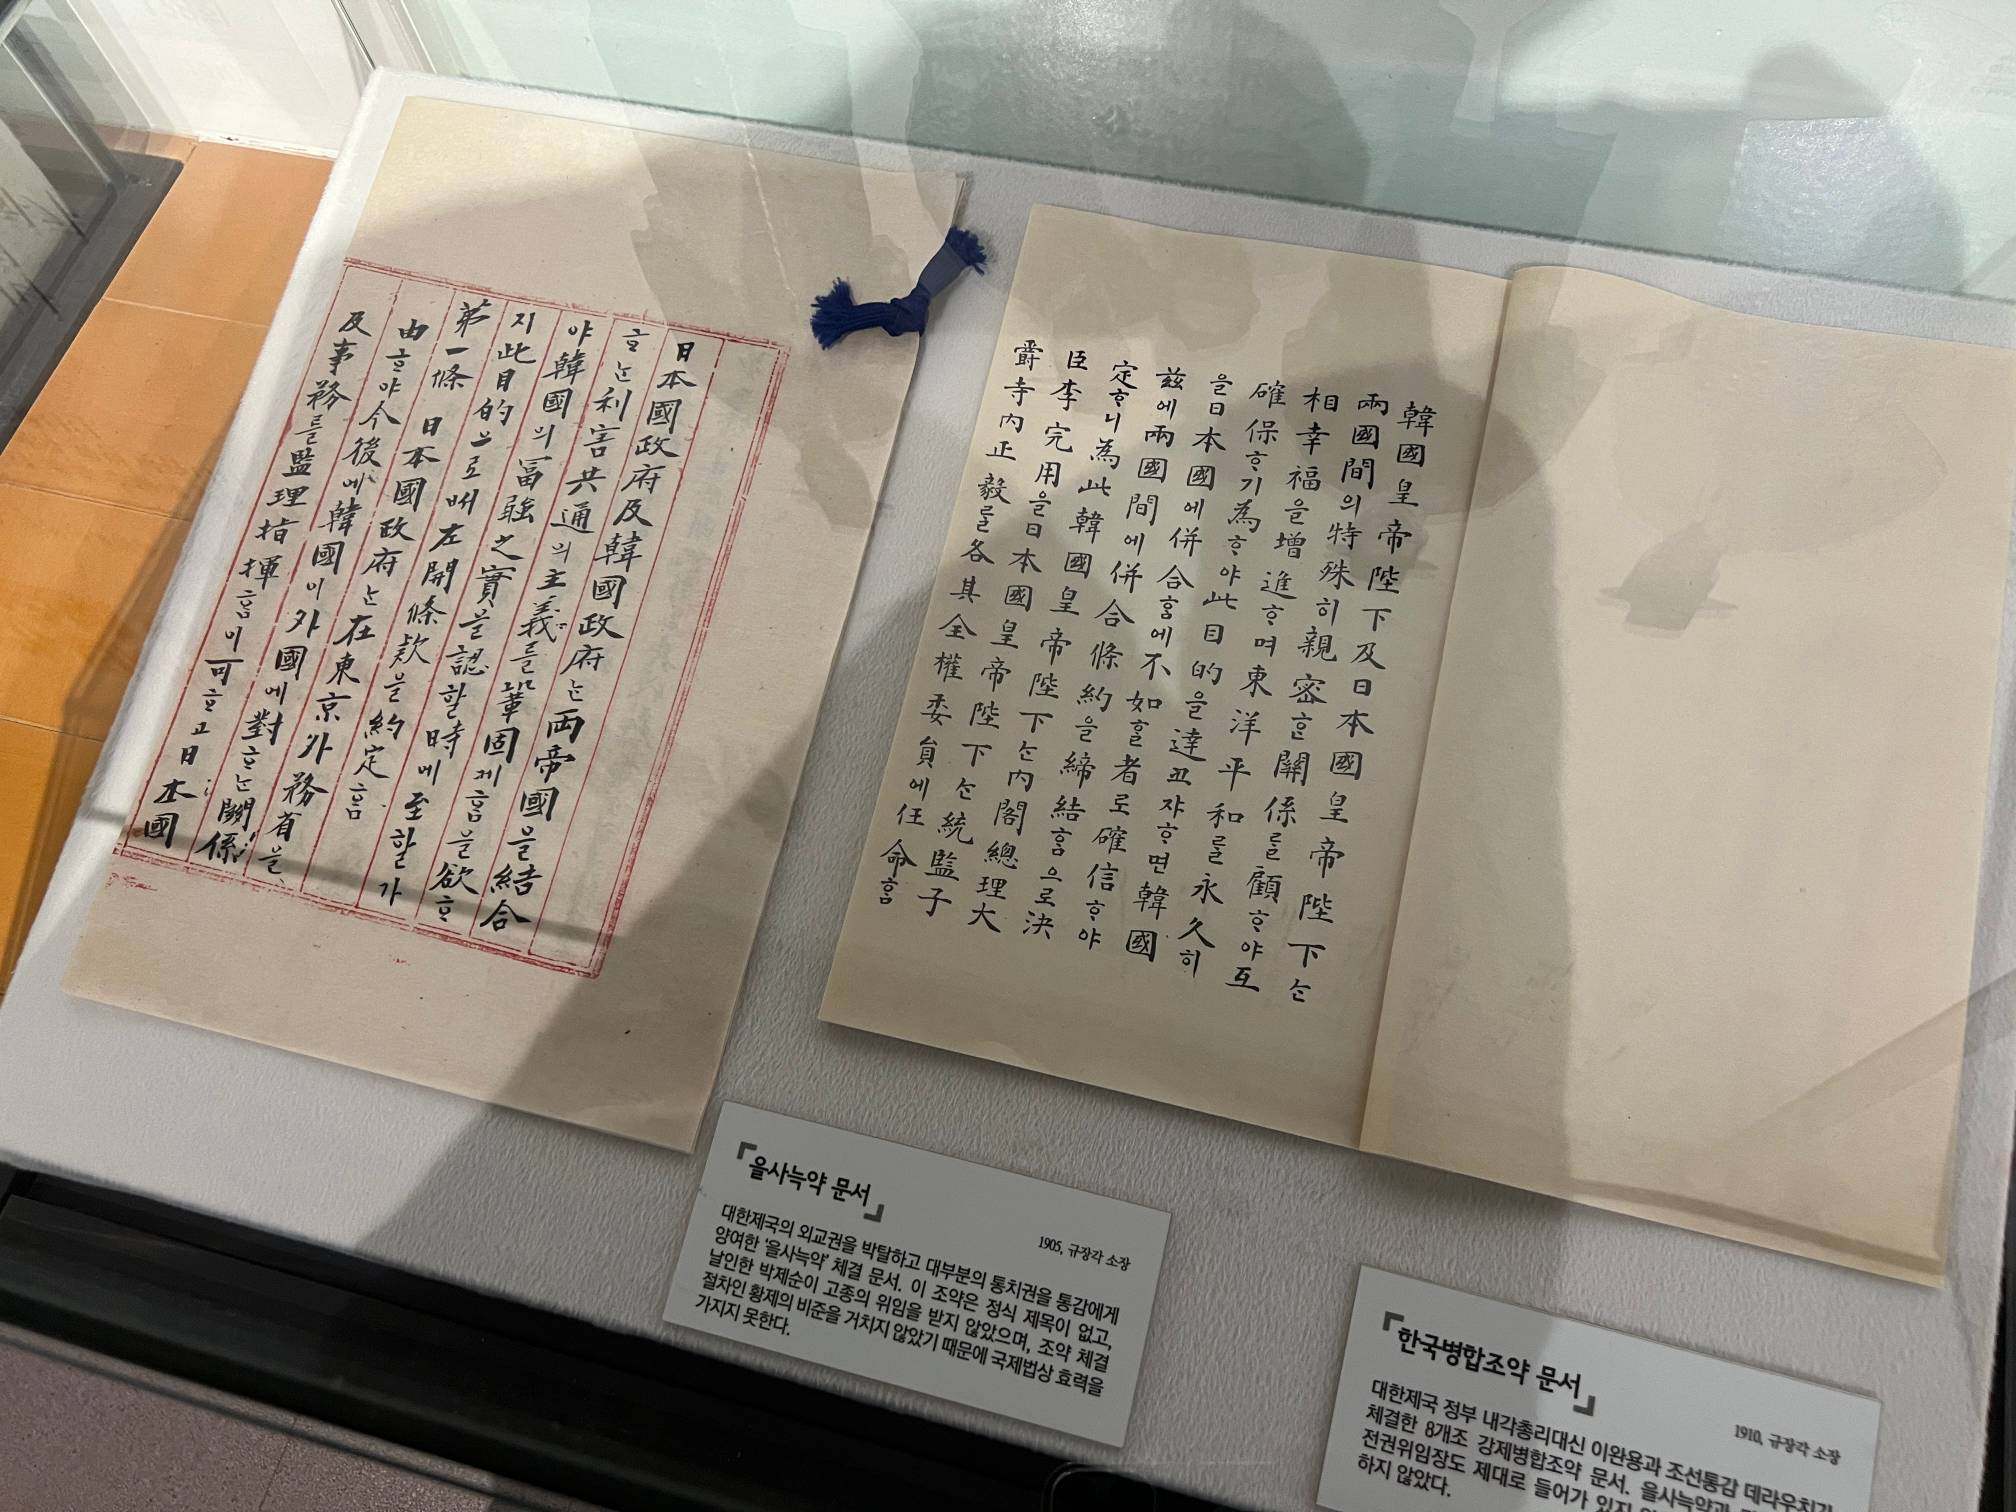 日本國政府及韓國政府는兩帝國을結合
ᄒᆞ는利害共通의主義를鞏固케ᄒᆞᆷ을欲ᄒᆞ
야韓國의冨强之實을認할時에至할가
지此目的으로써左開條款을約定ᄒᆞᆷ
第一條 日本國政府는在東京外務省을
由ᄒᆞ야今後에韓國이外國에對ᄒᆞ는關係
及事務를監理指揮ᄒᆞᆷ이可ᄒᆞ고日本國
韓國皇帝陛下及日本國皇帝陛下ᄂᆞᆫ
兩國間의特殊히親密ᄒᆞᆫ關係를顧ᄒᆞ야互
相幸福을增進ᄒᆞ며東洋平和를永久히
確保ᄒᆞ기為ᄒᆞ야此目的을達코쟈ᄒᆞ면韓國
을日本國에併合ᄒᆞᆷ에不如ᄒᆞᆯ者로確信ᄒᆞ야
玆에兩國間에併合條約을締結ᄒᆞᆷ으로決
定ᄒᆞ니為此韓國皇帝陛下ᄂᆞᆫ內閣總理大
臣李完用을日本國皇帝陛下ᄂᆞᆫ統監子
爵寺內正毅를各其全權委員에任命ᄒᆞᆷ
「을사늑약 문서」
1905, 규장각 소장
대한제국의 외교권을 박탈하고 대부분의 통치권을 통감에게
양여한 '을사늑약' 체결 문서. 이 조약은 정식 제목이 없고,
날인한 박제순이 고종의 위임을 받지 않았으며, 조약 체결
절차인 황제의 비준을 거치지 않았기 때문에 국제법상 효력을
가지지 못한다.
「한국병합조약 문서」
1910, 규장각 소장
대한제국 정부 내각총리대신 이완용과 조선통감 데라우치가
체결한 8개조 강제병합조약 문서. 을사늑약과
전권위임장도 제대로 들어가 있지
하지 않았다.